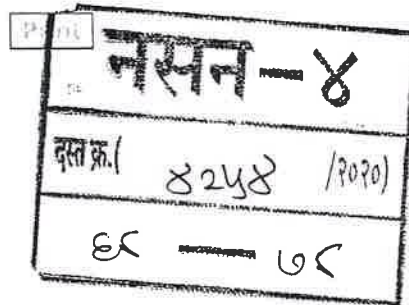 Print
नसन - ४
दस्त क्र.( ४२५४ /२०२०)
६८ — ७८